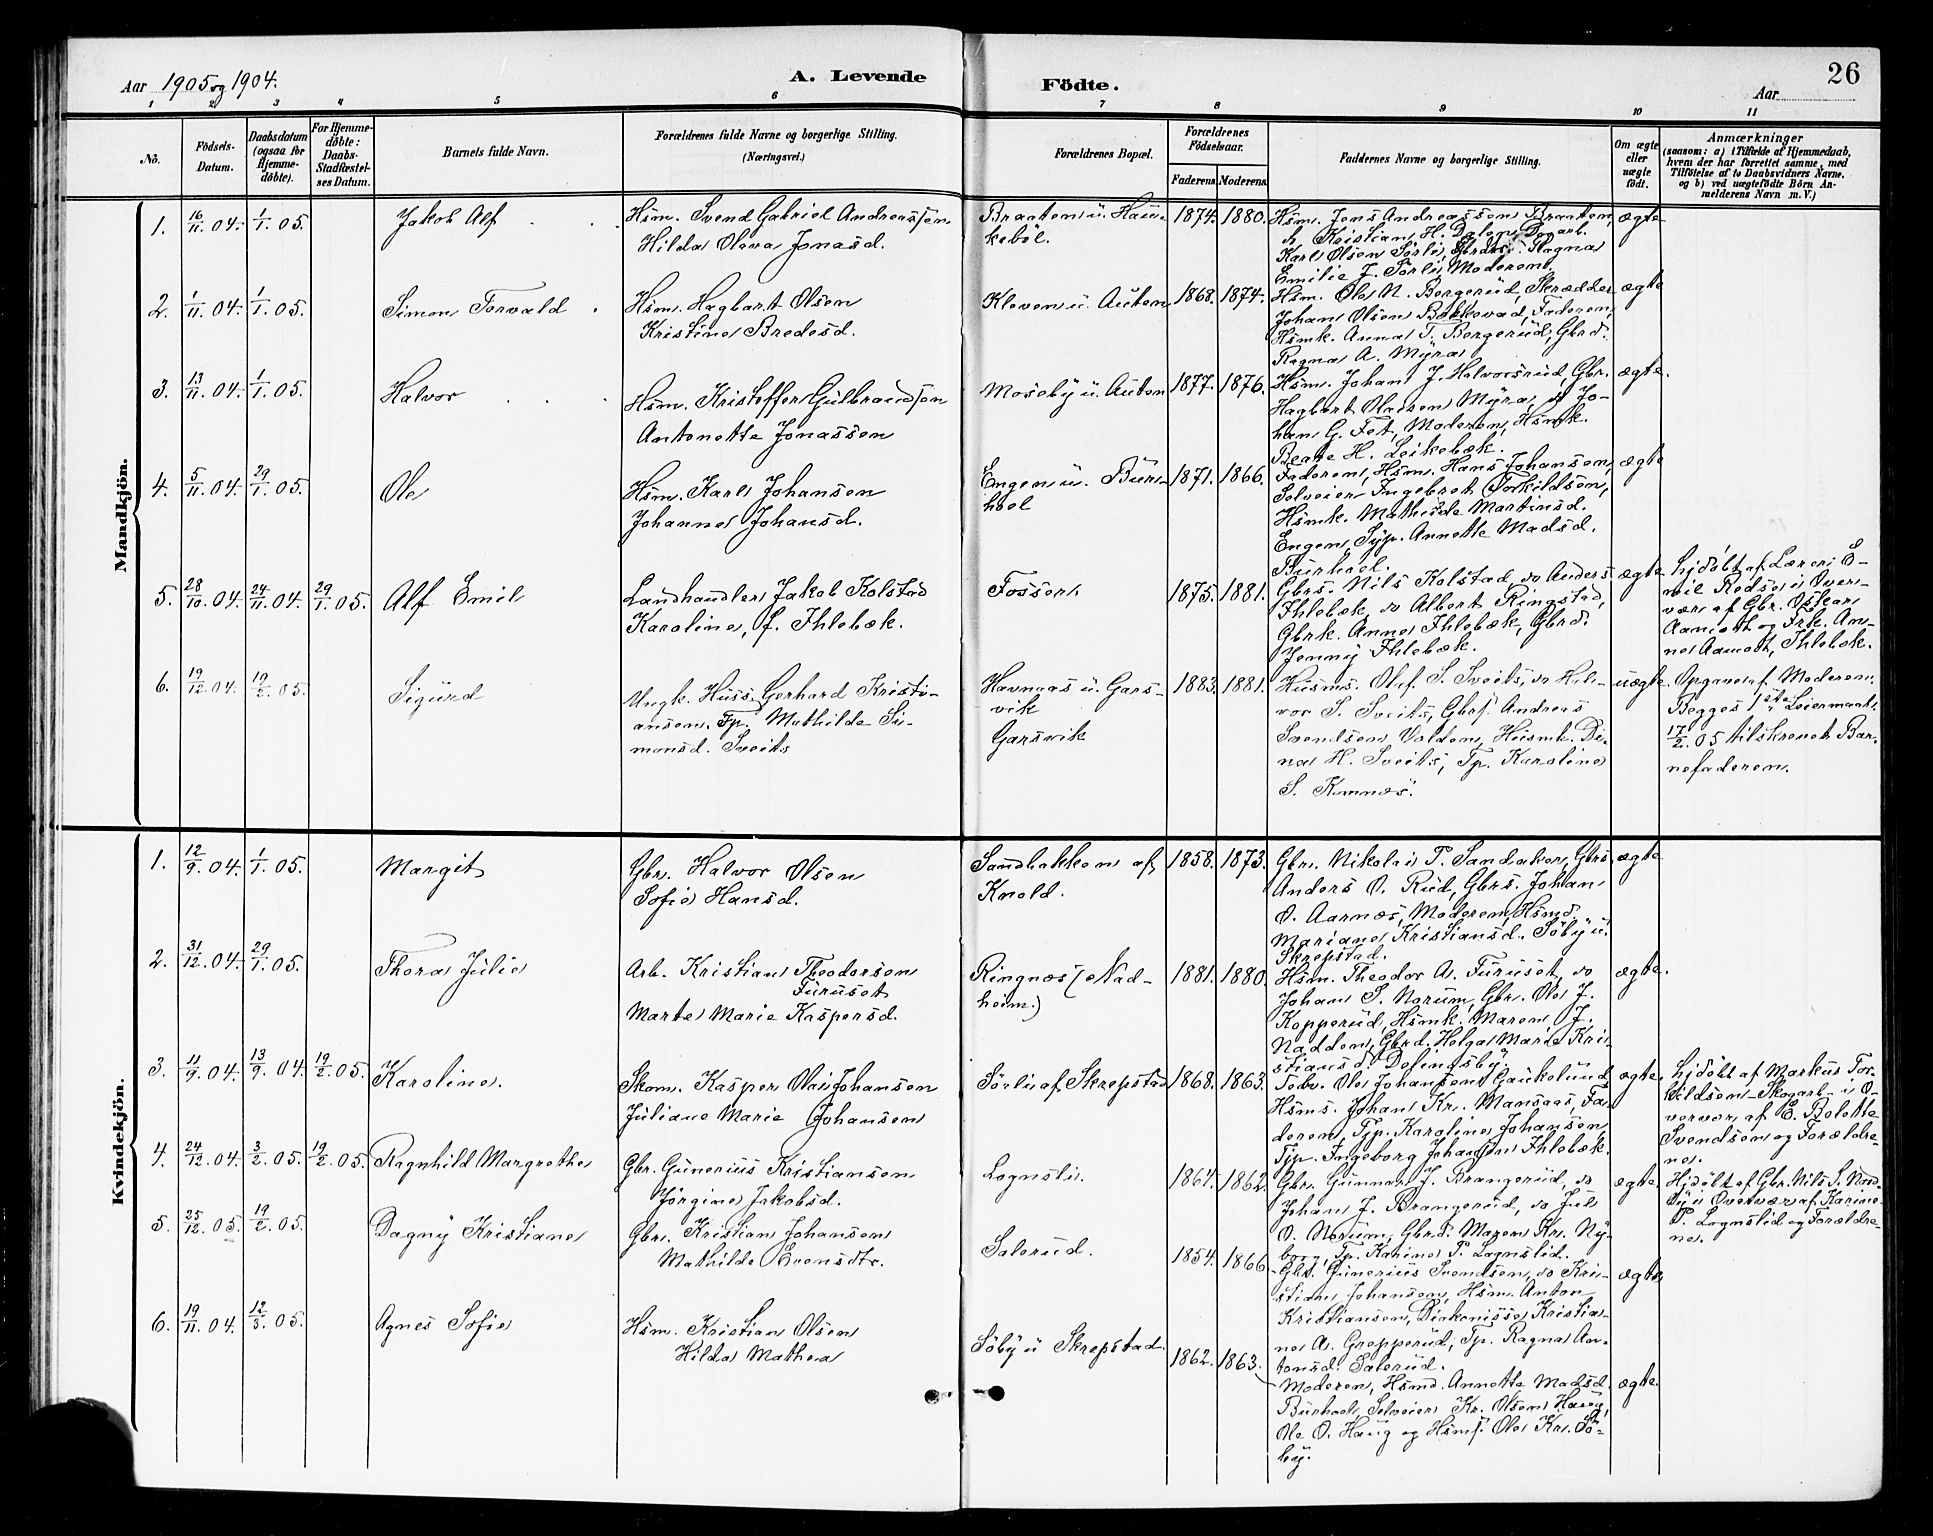 Aar 1905 og 1904.
A. Levende
Födte.
26
Aar
1 2 3 4 5 6 7 8 9 10 11
No.
Födsels-
Datum.
Daabsdatum
(ogsaa for
Hjemme-
döbte).
For Hjemme-
döbte:
Daabs-
Stadfæstel-
ses Datum.
Barnets fulde Navn.
Forældrenes fulde Navne og borgerlige Stilling.
(Næringsvei.)
Forældrenes Bopæl.
Forældrenes
Födselsaar.
Faderens. Moderens.
Faddernes Navne og borgerlige Stilling.
Om ægte
eller
uægte
födt.
Anmærkninger
(saasom: a) i Tilfælde af Hjemmedaab,
hvem der har forrettet samme, med
Tilföielse af to Daabsvidners Navne,
og b) ved uægtefödte Börn An-
melderens Navn m. V.)
Mandkjön.
1. 16/11 04. 1/1 05. Jakob Alf
Hsm. Svend Gabriel Andreassen
Hilda Oleva Jonasd.
Braaten u. Hau-
keböl.
1874. 1880.
Hsm. Jens Andreassen Braaten,
Kristian H. Dalen, Dagarb.
Karl Olsen Sörli, Gbrd. Ragna
Emilie J. Sörli, Moderen.
ægte
2. 1/11 04. 1/1 05. Simon Torvald
Hsm. Hagbart Olsen
Kristine Bredesd.
Kleven u. Auten
1868. 1874.
Hsm. Ole N. Bergerud, Skrædder
Johan Olsen Bakkevad, Faderen,
Hsmk. Anna T. Bergerud, Gbrd.
Ragna A. Myra
ægte
3. 13/11 04. 1/1 05. Halvor
Hsm. Kristoffer Gulbrandsen
Antonette Jonassen
Moseby u. Auten
1877. 1876.
Hsm. Johan J. Halvorsrud, Gbr.
Hagbart Olausen Myra, do Jo-
han G. Fet, Moderen, Hsmk.
Beate H. Leikebæk.
ægte.
4. 5/11 04. 29/1 05. Ole
Hsm. Karl Johansen
Johanne Johansd.
Engen u. Bur-
hoel
1871. 1866.
Faderen, Hsm. Hans Johansen,
Selveier Ingebret Torkildsen,
Hsmk. Mathilde Martinsd.
Engen, Syp. Annette Madsd.
Burhoel.
ægte
5. 28/10 04. 24/11 04. 29/1 05. Alf Emil
Landhandler Jakob Kolstad
Karoline, f. Ihlebæk.
Fossen
1875. 1881.
Gbrs. Nils Kolstad, do Anders
Ihlebæk, do Albert Ringstad,
Gbrk. Anne Ihlebæk, Gbrd.
Jenny Ihlebæk.
ægte
hjdöbt af Lærer E-
mil Rodse i Over-
vær af Gbr. Oskar
Aamodt og Frk. An-
na Aamodt, Ihlebæk.
6. 19/12 04. 19/2 05. Sigurd
Ungk. Huss. Gerhard Kristi-
ansen. Tp. Mathilde Si-
monsd. Sveits
Havnaas u. Gars-
vik
Garsvik
1883. 1881.
Husms. Olaf S. Sveits, do Hal-
vor S. Sveits, Gbrf. Andreas
Svendsen Volden, Husmk. Di-
na H. Sveits, Tp. Karoline
S. Komnæs.
uægte
Opgave af Moderen.
Begges 1ste Leiermaal.
17/2 05 tilskrevet Bar-
nefaderen.
Kvindekjön.
1. 12/9 04. 1/1 05. Margit
Gbr. Halvor Olsen
Sofie Hansd.
Sandbakken af
Knold.
1858. 1873.
Gbr. Nikolai P. Sandaker, Gbrs.
Anders O. Rud, Gbrs. Johan
O. Aarnæs, Moderen, Hsmd.
Mariane Kristiansd. Söby u.
Skrepstad.
ægte
2. 31/12 04. 29/1 05. Thora Julie
Arb. Kristian Theodorsen
Furuset
Marte Marie Kaspersd.
Ringnæs (Nad-
heim.)
1881. 1880.
Hsm. Theodor A. Furuset, do
Johan S. Norum, Gbr. Ole J.
Kopperud, Hsmk. Maren J.
Nadden, Gbrd. Helga Marie Kri-
stiansd. Dolingsby
ægte.
3. 11/9 04. 13/9 04. 19/2 05. Karoline.
Skom. Kasper Olai Johansen
Juliane Marie Johansen
Sörli af Skrepstad
1868. 1863.
Tobv. Ole Johansen Gaukelund
Hsms. Johan Kr. Mansaas, Fa-
deren, Tjp. Karoline Johansen
Tjp. Ingeborg Johansen Ihlebæk.
ægte.
hjdöbt af Markus Tor-
kildsen Skogarb. i O-
vervær af E. Bolette
Svendsen og Forældre-
ne.
4. 24/12 04. 3/2 05. 19/2 05. Ragnhild Margrethe
Gbr. Gunerius Kristiansen
Jörgine Jakobsd.
Lognsli.
1864. 1862.
Gbr. Gunnar J. Brangerud, do
Johan J. Brangerud, do Jul
O. Norum, Gbrd. Maren Kr. Ny-
borg, Tp. Karine P. Lognslid.
ægte.
Hjdöbt af Gbr. Nils S. Nord-
by i Overvær af Karine
P. Lognslid og Forældre-
ne.
5. 25/12 05. 19/2 05. Dagny Kristiane
Gbr. Kristian Johansen
Mathilde Evensdtr.
Salerud.
1854. 1866
Gbr. Gunerius Svendsen, do Kri-
stian Johansen, Hsm. Anton
Kristiansen, Diakonisse Kristia-
ne A. Gropperud, Tp. Ragna An-
tonsd. Salerud.
ægte
6. 19/11 04. 12/3 05. Agnes Sofie
Hsm. Kristian Olsen
Hilda Mathea
Söby u Skrepstad.
1862. 1863.
Moderen, Hsmd. Annette Madsd.
Burhoel, Selveier Kr. Olsen Haug,
Ole O. Haug og Hsmf. Ole Kr. Sö-
by.
ægte.